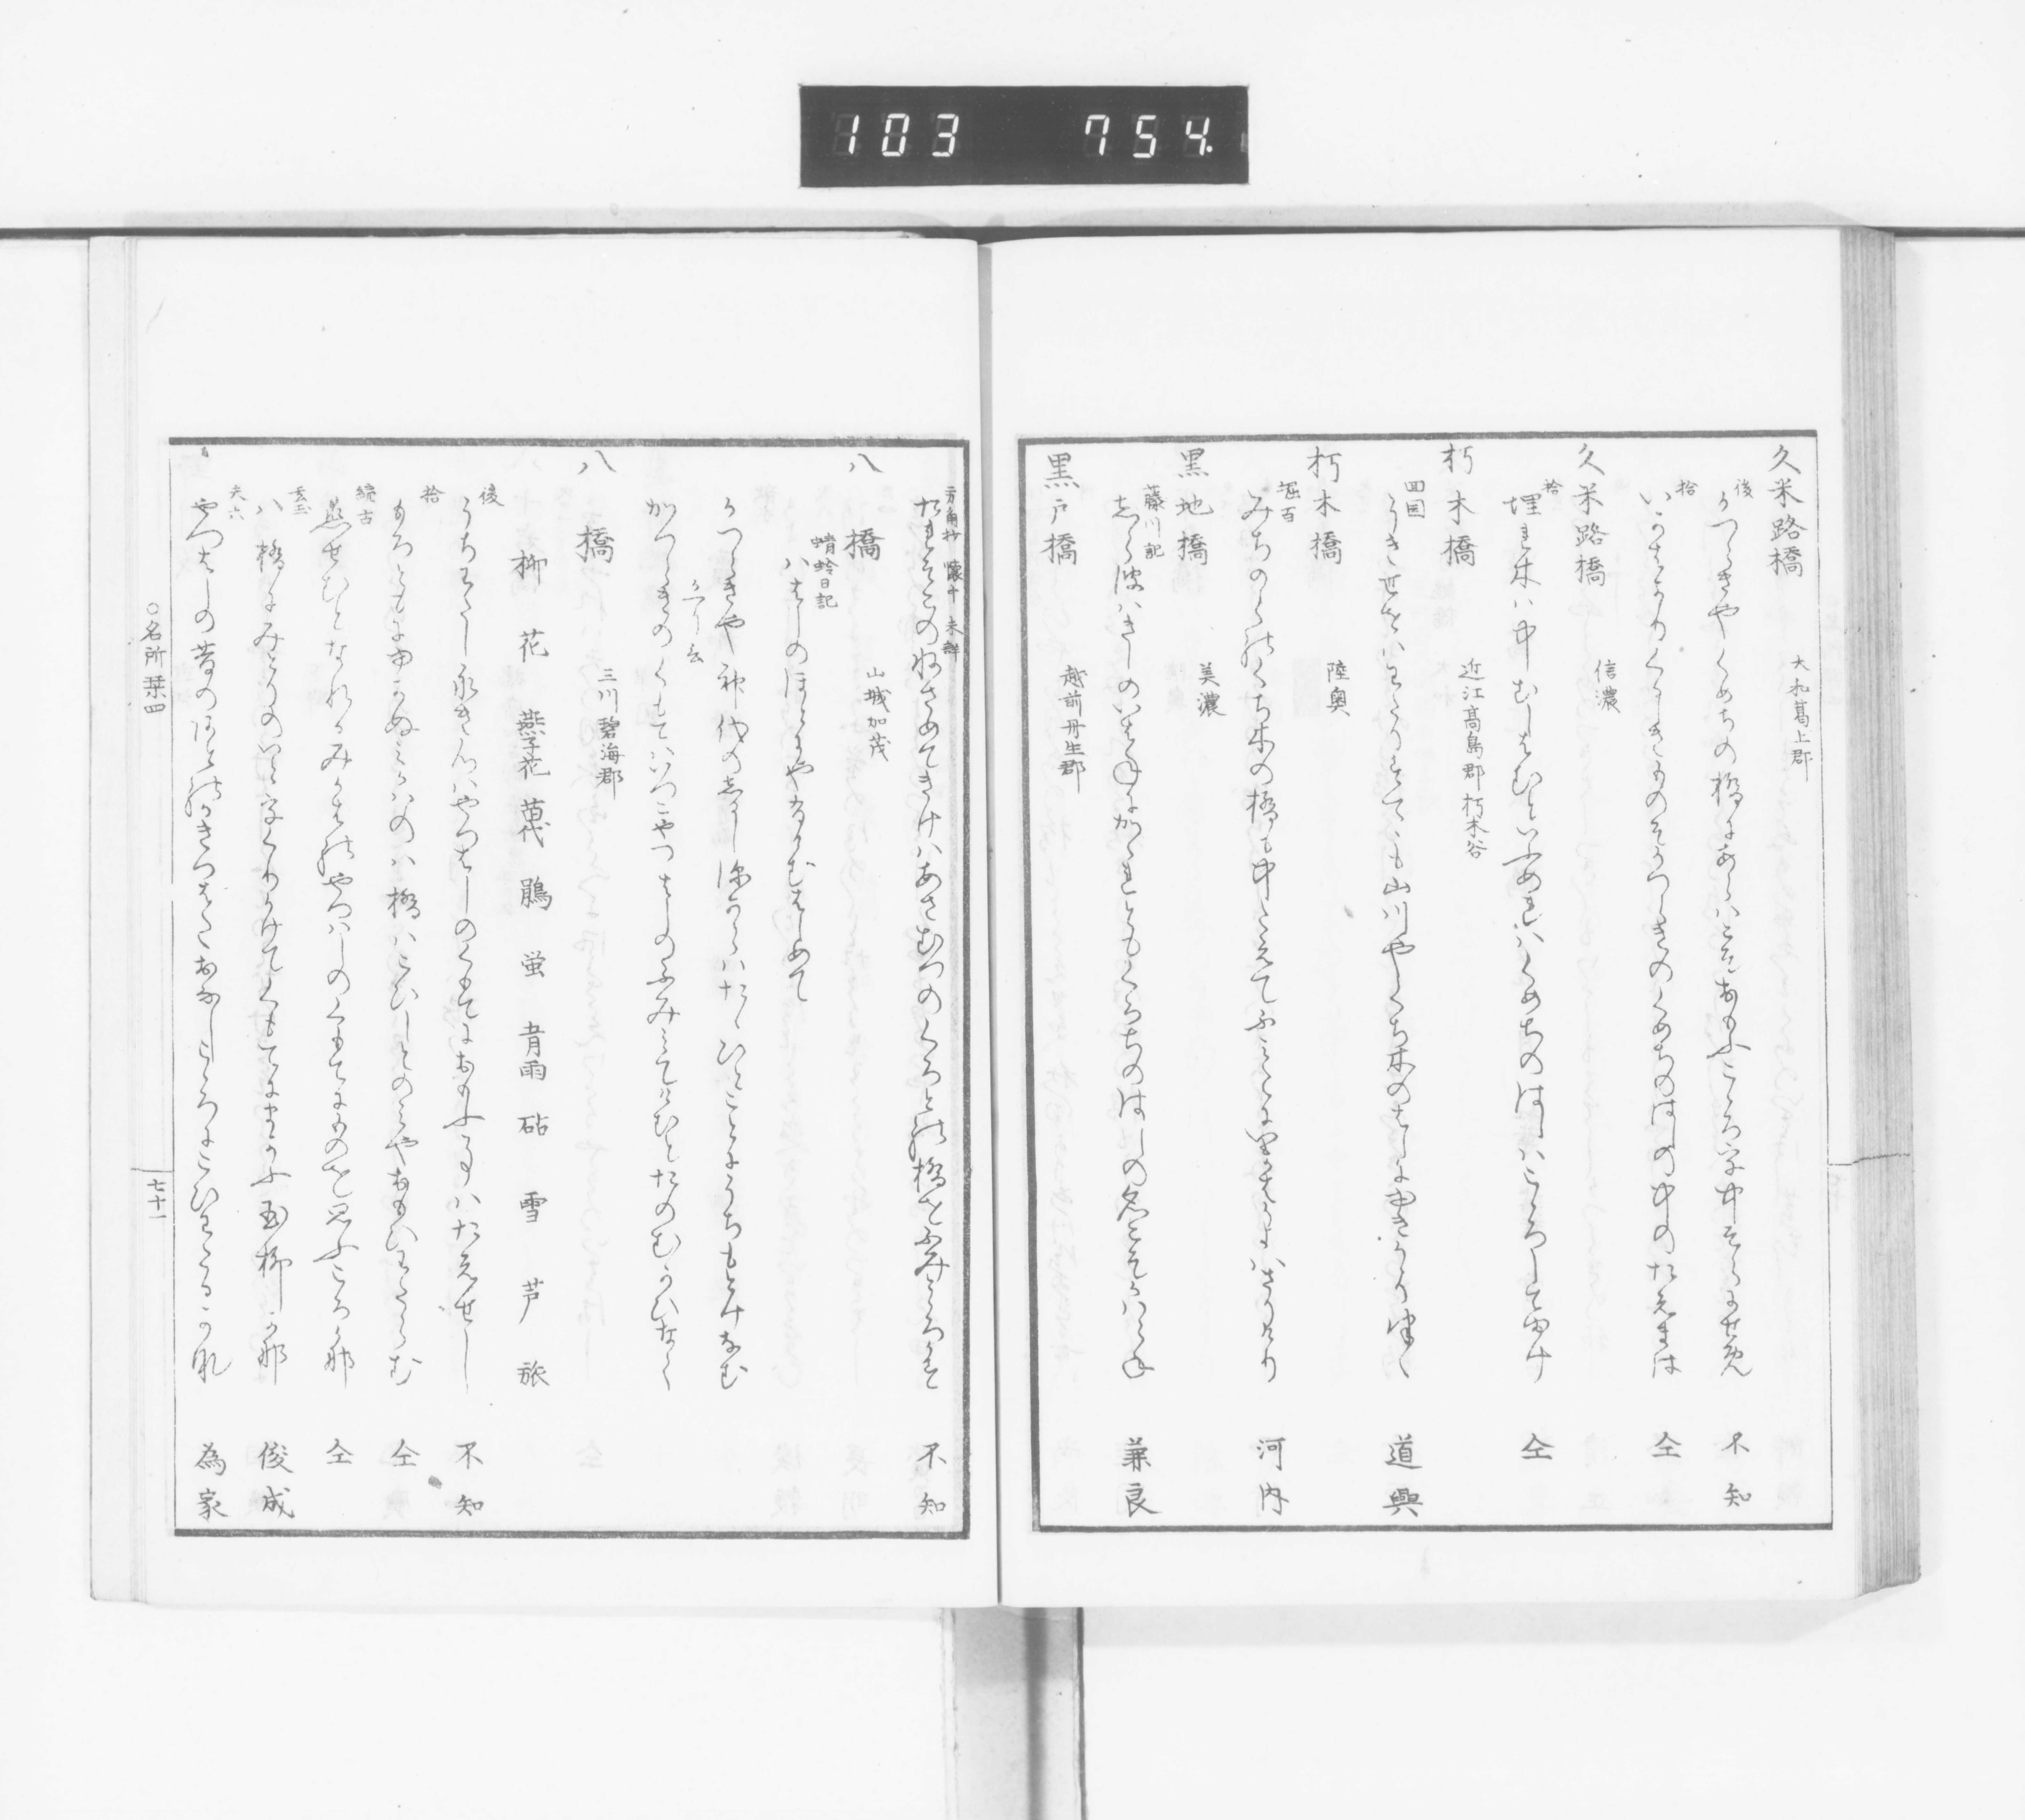 103 754.
久米路橋 大和葛上郡
後 かつらきやくめちの橋にあらはこそおもふこころを中そらにせめ 不知
拾 いかはかりくるしきものそかつらきのくめちのはしの中のたえまは 仝
久米路橋 信濃
拾 埋れ木は中むしはむといふめれはくめちのはしはこころしてゆけ 仝
朽木橋 近江高島郡朽木谷
回国 山川やくち木のはしに 道興
朽木橋 陸奥
堀百 みちのくのくち木の橋も中たえてふみ 河内
黒地橋 美濃
藤川記 しら波はきしのいはねにかかれともくろちのはしの名こそかはらね 兼良
黒戸橋 越前丹生郡
方角抄 懐中 未詳 たれそこのねさめてきけはあさむつのくろとの橋をふみととろかす 不知
八橋 山城加茂
蜻蛉日記 八はしのほとにやありけむはしめて
かつらきや神代のしるし深からはたたひとことにうちもとけなむ
かへり云
かつらきのくもてはいつこやつはしのふみみてけむとたのむかひなく
八橋 三川碧海郡
柳 花 燕子花 菖代 鵑 蛍 青雨 砧 雪 芦 旅
後 うちわたし永き心はやつはしのくもてにおもふ事はたえせし 不知
拾 もろともにゆかぬみかはの八橋はこひしとのみやおもひわたらむ 仝
続古 恋せむとなれるみかはのやつはしのくもてにものを思ふころかな 仝
玄玉 八橋にみとりのいとをくりかけてくもてにまかふ玉柳かな 俊成
夫六 やつはしの昔のあとのかきつはたおなしこころにこひわたるかな 為家
○名所栞四
七十一